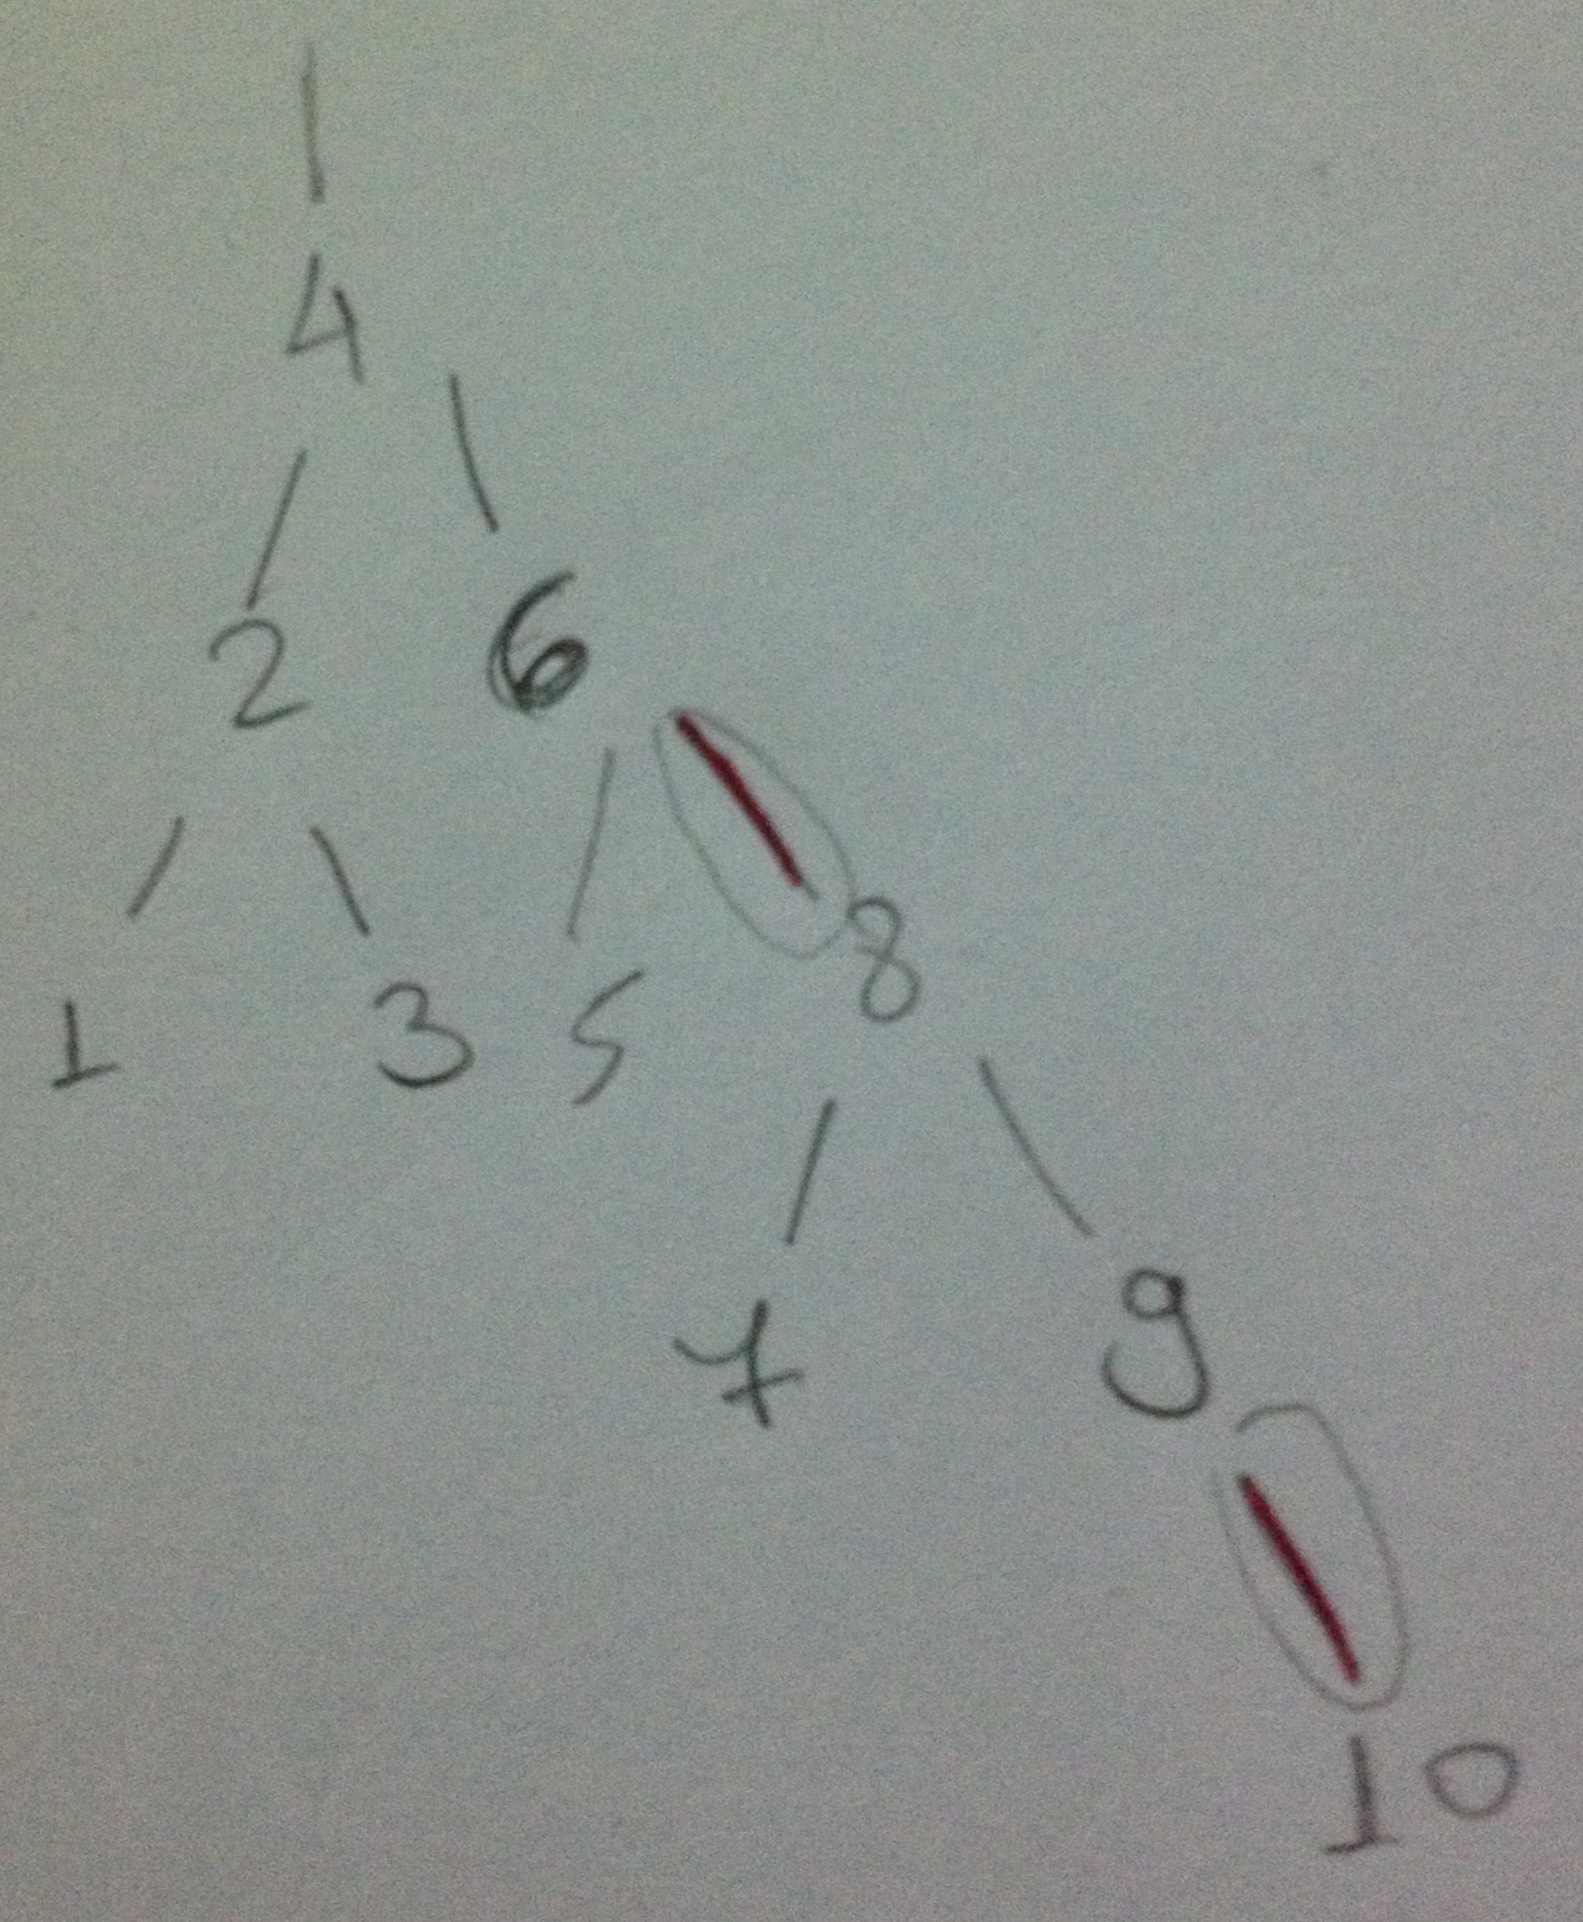 4
2 6
1 3 5 8
7 9
10